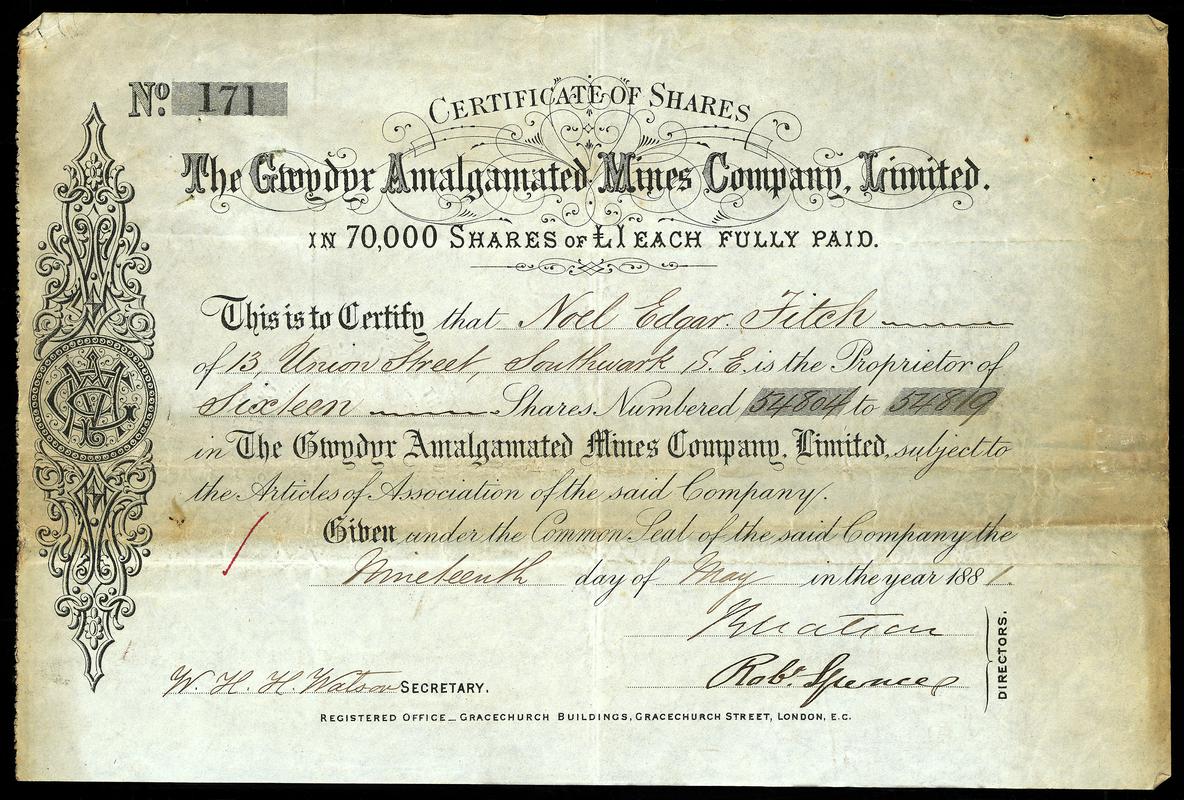 No. 171
CERTIFICATE OF SHARES
The Gwydyr Amalgamated Mines Company, Limited.
IN 70,000 SHARES OF £1 EACH FULLY PAID.
This is to Certify that Noel Edgar Fitch
of 13, Union Street, Southwark S.E. is the Proprietor of
Sixteen Shares Numbered 54804 to 54819
in The Gwydyr Amalgamated Mines Company, Limited, subject to
the Articles of Association of the said Company.
Given under the Common Seal of the said Company the
Nineteenth day of May in the year 1881.
Robt. Spence
DIRECTORS.
W. H. H Watson SECRETARY.
REGISTERED OFFICE_ GRACECHURCH BUILDINGS, GRACECHURCH STREET, LONDON, E.C.